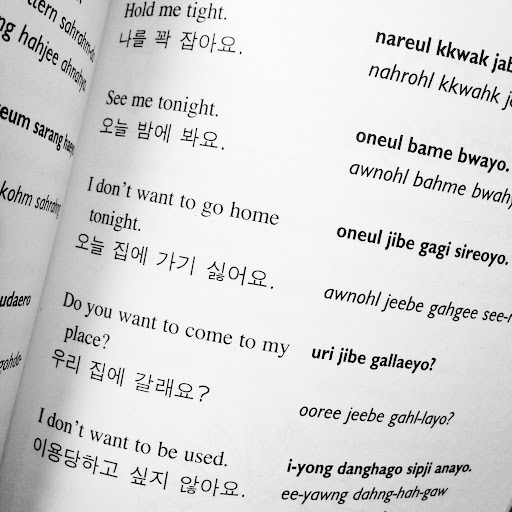 Hold me tight.
나를 꽉 잡아요.
nareul kkwak
nahrohl kkwahk
See me tonight.
오늘 밤에 봐요.
oneul bame bwayo.
awnohl bahme
I don't want to go home
tonight.
오늘 집에 가기 싫어요.
oneul jibe gagi sireoyo.
awnohl jeebe gahgee
Do you want to come to my
place?
우리 집에 갈래요?
uri jibe gallaeyo?
ooree jeebe gahl-layo?
I don't want to be used.
이용당하고 싶지 않아요.
i-yong danghago sipji anayo.
ee-yawng dahng-hah-gaw